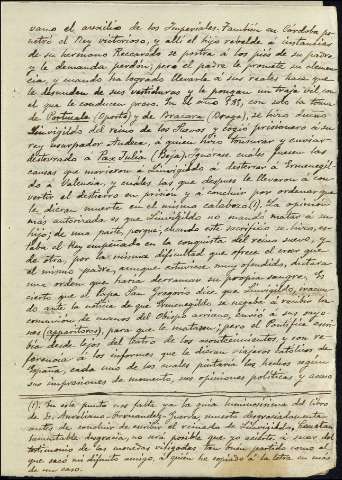 vano el auxilio de los Imperiales. Tambien en Córdoba pe-
netró el Rey victorioso, y allí el hijo rebelde á instancias
de su hermano Reccaredo se postra á los pies de su padre
y le demanda perdón; pero el padre le promete su clemen-
cia, y cuando ha logrado llevarle á sus reales hace que
le desnuden de sus vestiduras y le pongan un traje vil con
el que le conducen preso. En el año 585, con solo la toma
de Portucale (Oporto) y de Bracara (Braga), se hizo dueño
Liuvigildo del reino de los Suevos y cogió prisionero á su
rey usurpador Andeca, á quien hizo tonsurar y enviar
desterrado á Pax Julia (Beja). Ignoranse cuáles fuesen las
causas que movieron á Liuvigildo á desterrar á Ermenegil-
do á Valencia, y cuáles las que despues le llevaron á con-
vertir el destierro en prisión y á concluir por ordenar que
le dieran muerte en el mismo calabozo (1). La opinión
más autorizada es que Liuvigildo no mandó matar á su
hijo; de una parte, porque, cuando este sacrificio se hizo, es-
taba el Rey empeñado en la conquista del reino suevo, y
de otra, por la misma dificultad que ofrece el creer que
el mismo padre, aunque estuviese muy ofendido, dictara
una orden que haria derramar su propia sangre. Es
cierto que el Papa San Gregorio dice que Liuvigildo, iracun-
do ante la noticia de que Ermenegildo se negaba á recibir la
comunión de manos del Obispo arriano, envió á sus sayo-
nes (apparitores), para que le matasen; pero el Pontífice escri-
bia desde lejos del teatro de los acontecimientos, y con re-
ferencia á los informes que le dieran viajeros católicos de
España, cada uno de los cuales pintaria los hechos segun
sus impresiones de momento, sus opiniones políticas y acaso
(1). En este punto nos falta ya la guia luminosisima del libro
de D. Aureliano Fernandez-Guerra, muerto desgraciadamente
antes de concluir de escribir el reinado de Liuvigildo. Con tan
lamentable desgracia, no será posible que yo acierte, á sacar del
testimonio de las monedas visigodas tan buen partido como el
que sacó mi difunto amigo, á quien he copiado á la letra en más
de un caso.